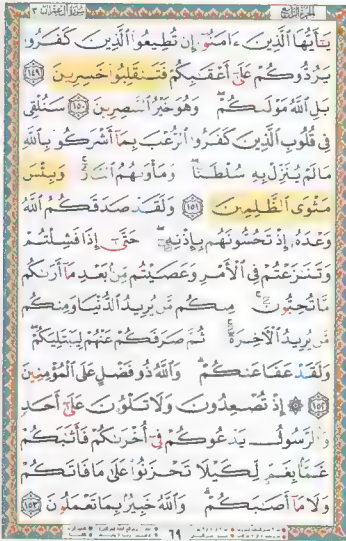 سورة آل عمران ٣ الجزء الرابع
يَٰٓأَيُّهَا ٱلَّذِينَ ءَامَنُوٓا۟ إِن تُطِيعُوا۟ ٱلَّذِينَ كَفَرُوا۟
يَرُدُّوكُمْ عَلَىٰٓ أَعْقَٰبِكُمْ فَتَنقَلِبُوا۟ خَٰسِرِينَ ١٤٩
بَلِ ٱللَّهُ مَوْلَىٰكُمْ ۖ وَهُوَ خَيْرُ ٱلنَّٰصِرِينَ ١٥٠ سَنُلْقِى
فِى قُلُوبِ ٱلَّذِينَ كَفَرُوا۟ ٱلرُّعْبَ بِمَآ أَشْرَكُوا۟ بِٱللَّهِ
مَا لَمْ يُنَزِّلْ بِهِۦ سُلْطَٰنًا ۖ وَمَأْوَىٰهُمُ ٱلنَّارُ ۚ وَبِئْسَ
مَثْوَى ٱلظَّٰلِمِينَ ١٥١ وَلَقَدْ صَدَقَكُمُ ٱللَّهُ
وَعْدَهُۥٓ إِذْ تَحُسُّونَهُم بِإِذْنِهِۦ ۖ حَتَّىٰٓ إِذَا فَشِلْتُمْ
وَتَنَٰزَعْتُمْ فِى ٱلْأَمْرِ وَعَصَيْتُم مِّنۢ بَعْدِ مَآ أَرَىٰكُم
مَّا تُحِبُّونَ ۚ مِنكُم مَّن يُرِيدُ ٱلدُّنْيَا وَمِنكُم
مَّن يُرِيدُ ٱلْءَاخِرَةَ ۚ ثُمَّ صَرَفَكُمْ عَنْهُمْ لِيَبْتَلِيَكُمْ ۖ
وَلَقَدْ عَفَا عَنكُمْ ۗ وَٱللَّهُ ذُو فَضْلٍ عَلَى ٱلْمُؤْمِنِينَ
١٥٢ ۞ إِذْ تُصْعِدُونَ وَلَا تَلْوُۥنَ عَلَىٰٓ أَحَدٍ
وَٱلرَّسُولُ يَدْعُوكُمْ فِىٓ أُخْرَىٰكُمْ فَأَثَٰبَكُمْ
غَمًّۢا بِغَمٍّ لِّكَيْلَا تَحْزَنُوا۟ عَلَىٰ مَا فَاتَكُمْ
وَلَا مَآ أَصَٰبَكُمْ ۗ وَٱللَّهُ خَبِيرٌۢ بِمَا تَعْمَلُونَ ١٥٣
٦٩